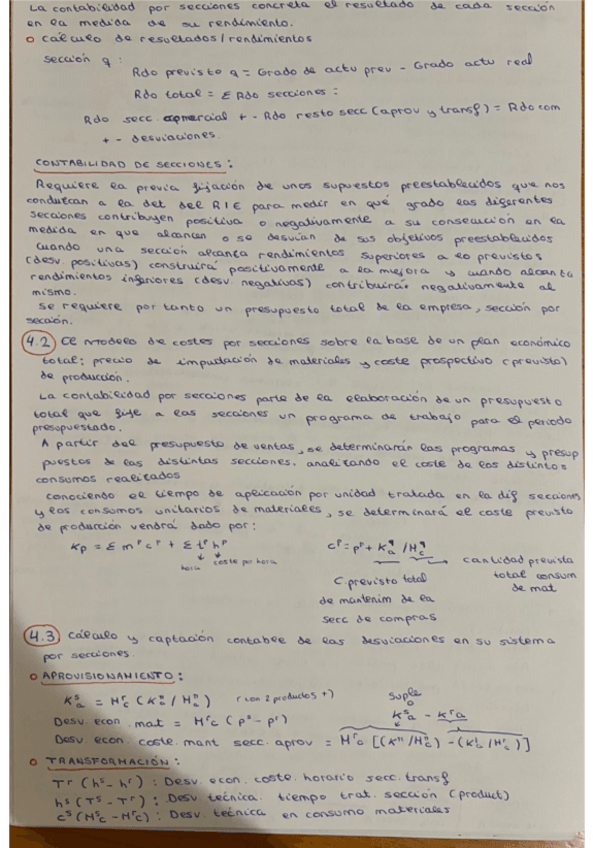 La contabilidad por secciones concreta el resultado de cada sección
en la medida de su rendimiento.
o cálculo de resultados/rendimientos
sección q:
Rdo previsto q = Grado de actu prev - Grado actu real
Rdo total = Σ Rdo secciones:
Rdo secc. comercial + - Rdo resto secc (aprov y transf) = Rdo com
+ - desviaciones.
CONTABILIDAD DE SECCIONES:
Requiere la previa fijación de unos supuestos preestablecidos que nos
conduzcan a la det del RIE para medir en qué grado las diferentes
secciones contribuyen positiva o negativamente a su consecución en la
medida en que alcanzan o se desvían de sus objetivos preestablecidos
cuando una sección alcanza rendimientos superiores a lo previstos
(desv. positivas) construirá positivamente a la mejora y cuando alcanza
rendimientos inferiores (desv. negativas) contribuirá negativamente al
mismo.
Se requiere por tanto un presupuesto total de la empresa, sección por
sección.
4.2 CE Modelo de costes por secciones sobre la base de un plan económico
total: precio de imputación de materiales y coste prospectivo (previsto)
de producción.
La contabilidad por secciones parte de la elaboración de un presupuesto
total que fije a las secciones un programa de trabajo para el periodo
presupuestado.
A partir del presupuesto de ventas, se determinarán las programas y presup
puestos de las distintas secciones. analizando el coste de los distintos
consumos realizados
conociendo el tiempo de aplicación por unidad tratada en la dif secciones
y los consumos unitarios de materiales, se determinará el coste previsto
de producción vendrá dado por:
Kp = Σ m^p c^p + Σ t^p h^p    c^p = p^p + K_a^q / H_c^q    cantidad prevista
hora    coste por hora    C. previsto total    total consum
de mantenim de la    de mat
secc de compras
4.3 cálculo y captación contable de las desviaciones en su sistema
por secciones.
o APROVISIONAMIENTO:
K_a^s = H_c^r (K_a^n / H_c^n)    (con 2 productos +)    suple
Desv. econ. mat = H_c^r (p^s - p^r)    K_a^s - K_a^r
Desv. econ. coste. mant secc. aprov = H_c^r [(K^n/H_c^n) - (K_a^r/H_c^r)]
o TRANSFORMACIÓN:
T^r (h^s - h^r): Desv. econ. coste. horario secc. transf
h^s (T^s - T^r): Desv técnica. tiempo trat. sección (product)
c^s (H_c^s - H_c^r): Desv. técnica en consumo materiales